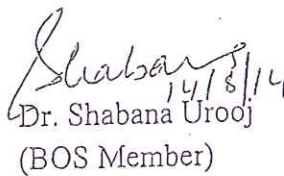 Shabana
14/8/14
Dr. Shabana Urooj
(BOS Member)